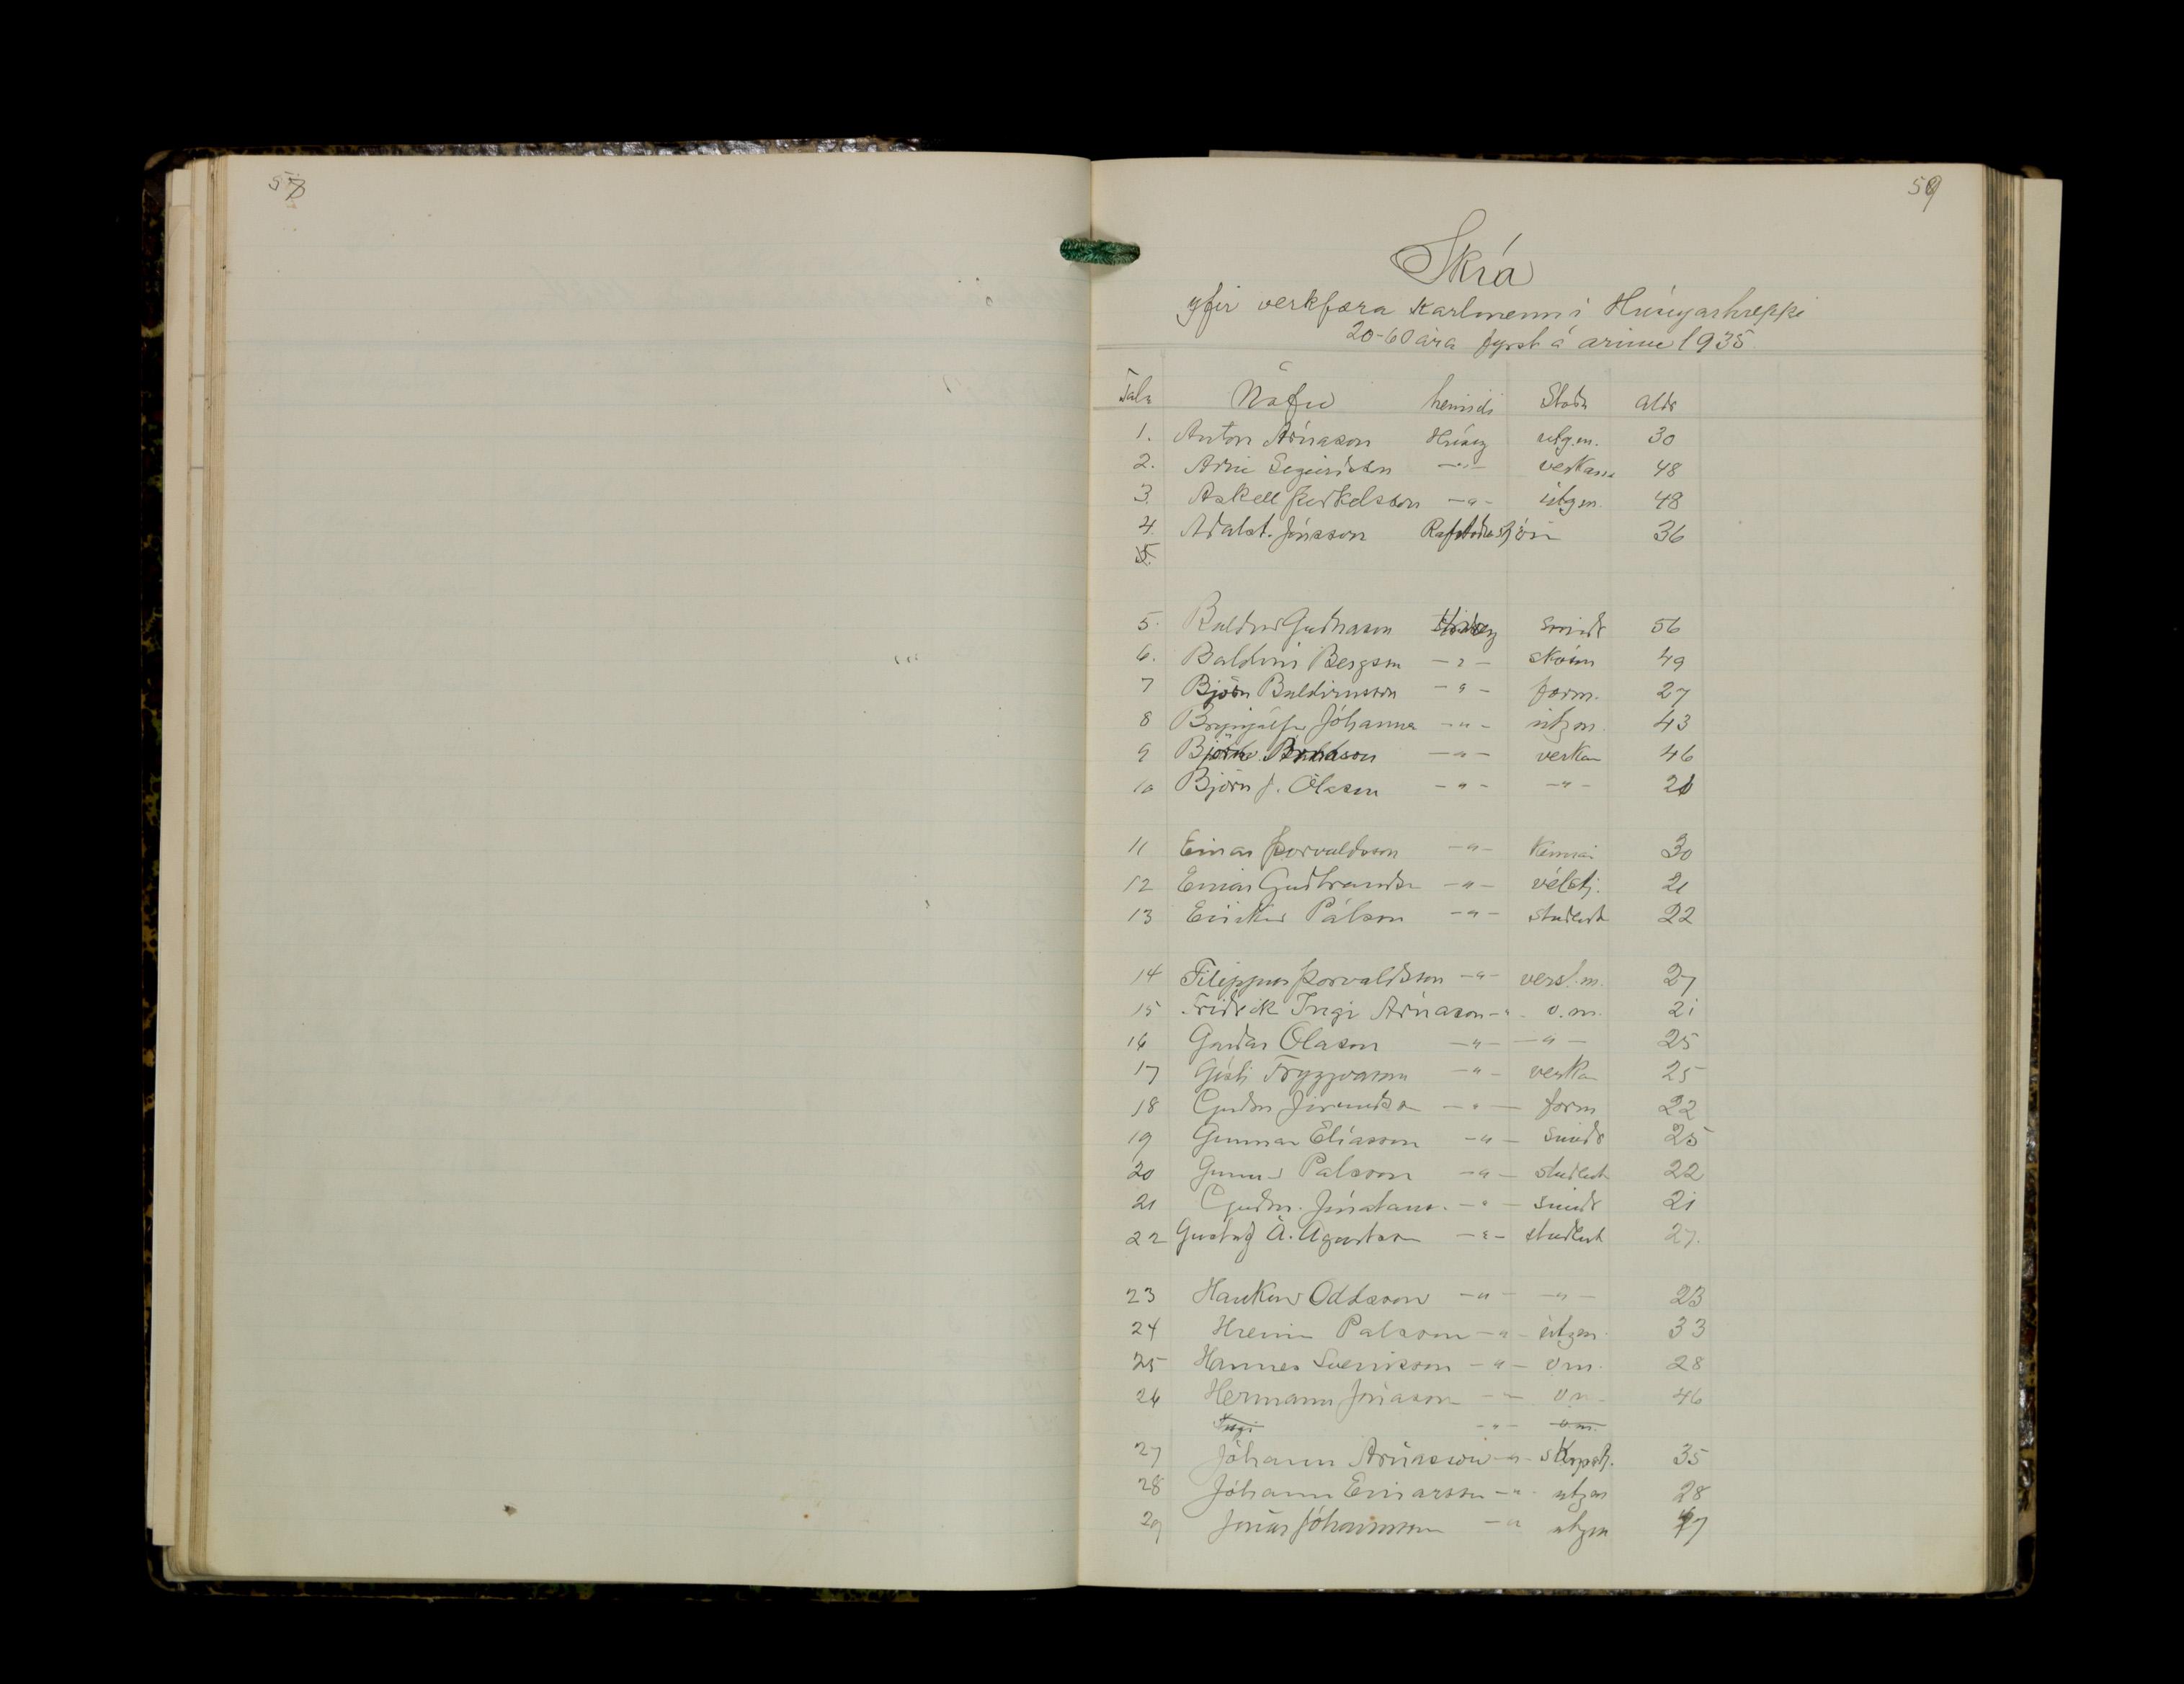 58
59
Skrá
yfir verkfæra karlmenn í Hríseyarhreppi
20-60 ára fyrst á árinu 1935
Tala Nöfn heimili Staða aldr
1. Anton Árnason Hrísey útg.m. 30
2. Árni Sigurðsson -"- verkam 48
3. Áskell Þorkelsson -"- útgm. 48
4. Aðalst. Jónsson Rafstöðvstjóri 36
5.
5. Baldur Guðnason Hrísey smiðr 56
6. Baldvin Bergsson -"- skósm 49
7 Björn Baldvinsson -"- form. 27
8 Brynjólfur Jóhanns -"- útgm. 43
9 Björn -"- verkam 46
10 Björn J. Ólason -"- -"- 21
11 Einar Þorvaldsson -"- Kennari 30
12 Einar Guðbrands -"- vélstj. 21
13 Eiríkur Pálsson -"- student 22
14 Filippus Þorvaldsson -"- versl.m. 27
15 Friðrik Ingi Árnason -"- v.m. 21
16 Garðar Ólason -"- -"- 25
17 Gísli Tryggvason -"- verka 25
18 Guðm Jörundsson -"- form 22
19 Gunnar Elíasson -"- smiðr 25
20 Gunnar Pálsson -"- student 22
21 Guðm. Jónatans. -"- smiðr 21
22 Gustaf A. Agustsson -"- student 27.
23 Haukur Oddsson -"- -"- 23
24 Hreinn Palsson -"- útgm 33
25 Hannes Sveinsson -"- v.m. 28
26 Hermann Jónasson -"- v.m. 46
Ingi -"- v.m.
27 Jóhann Árnason -"- skipstj. 35
28 Jóhann Einarsson -"- útgm 28
29 Jónas Jóhannsson -"- útgm 47